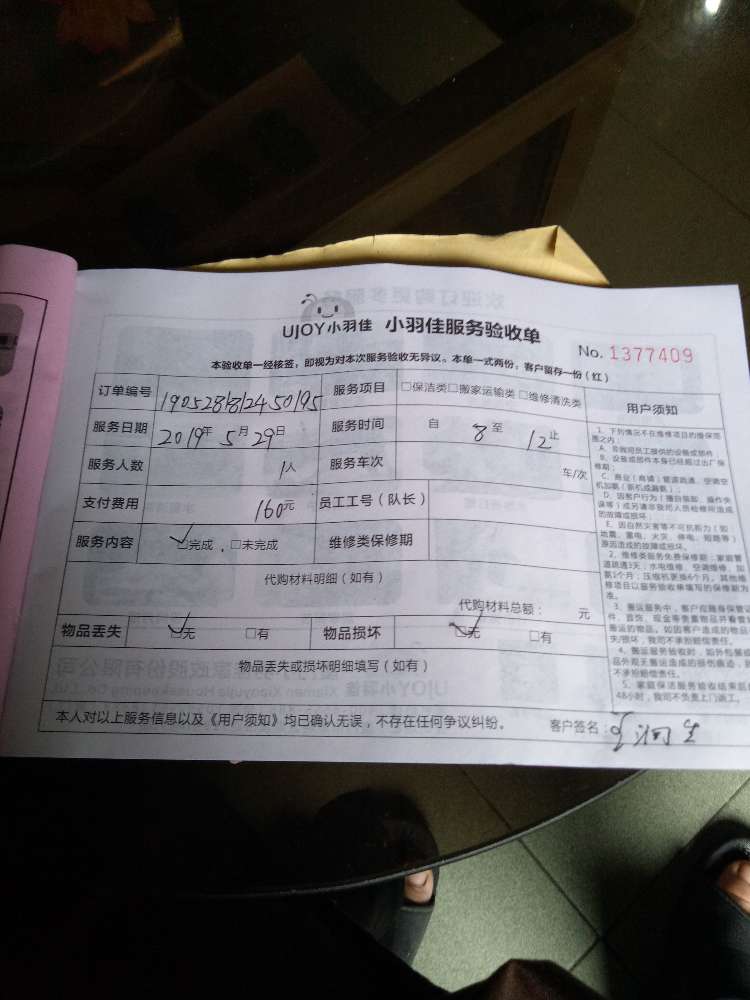 UJOY小羽佳 小羽佳服务验收单
No. 1377409
本验收单一经核签，即视为对本次服务验收无异议。本单一式两份，客户留存一份（红）
订单编号 1905281812450195 服务项目 □保洁类□搬家运输类□维修清洗类 用户须知
服务日期 2019年 5月29日 服务时间 自 8 至 12 止
服务人数 1人 服务车次 车/次
支付费用 160元 员工工号（队长）
服务内容 ☑完成 □未完成 维修类保修期
代购材料明细（如有）
代购材料总额： 元
物品丢失 ☑无 □有 物品损坏 ☑无 □有
物品丢失或损坏明细填写（如有）
本人对以上服务信息以及《用户须知》均已确认无误，不存在任何争议纠纷。 客户签名：
1、下列情况不在维修项目的维保范
围之内：
A、非我司员工提供的设备或部件
B、设备或部件本身已经超过出厂保
修期；
C、商业（商铺）管道疏通、空调空
机加氨（新机或漏氨）；
D、因客户行为（擅自拆卸、操作失
误等）或另请非我司人员检修所造成
的故障或损坏；
E、因自然灾害等不可抗拒力（如：
地震、雷电、火灾、停电、短路等）
原因造成的故障或损坏。
2、维修类服务免费保修期：家庭管
道疏通3天；水电维修、空调维修、加
氨1个月；压缩机更换6个月。其他维
修项目以服务验收单填写的保修期为
准。
3、搬运服务中，客户应随身保管
件、首饰、现金等贵重物品并看管
搬运的物品。如因客户造成的物品
失/损坏，我司不承担赔偿责任。
4、搬运服务验收时，如外包装
品外观无搬运造成的损伤痕迹，
不承担赔偿责任。
5、家庭保洁服务验收结束后
48小时，我司不负责上门返工。